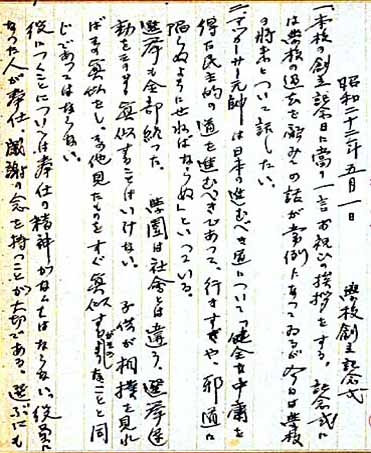 昭和二十二年五月一日　學校創立記念式
一、本校の創立記念日に當り一言お祝の挨拶をする。記念式に
は學校の過去を顧みての話が常例になってゐるが今日は學校
の將来について話したい。
二、マッカーサー元帥は日本の進むべき道について「健全な中庸を
得た民主的の道を進むべきであって、行きすぎや、邪道に
陥らぬようにせねばならぬ」といっている。
選挙も全部終った。學園は社會とは違う、選挙運
動をそのまゝ真似することはいけない。子供が相撲を見れ
ばその真似をし、その他見たものをすぐ真似するようなことと同
じであってはならない。
役につくことについては奉仕の精神がなくてはならない。役員に
なった人が奉仕、感謝の念を持つことが大切である。選ぶにも